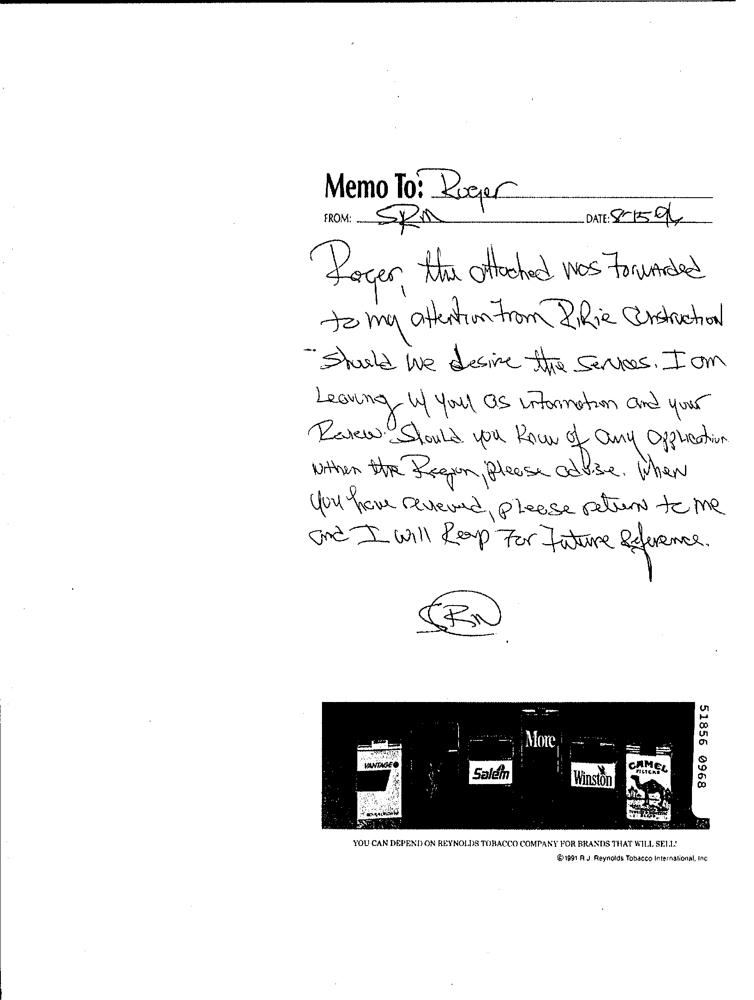 Memo To: Roger
FROM: SRM
DATE: 8-15-96
Roger, the attached was forwarded
to my attention from Construction
- Should we desire the services. I am
Leaving w/ you as information and your
Review. Should you know of any application
within the Region, please advise. When
you have reviewed, please return to me
and I will keep For Future Reference.
SRM
VANTAGE
Salem
More
Winston
CAMEL
FILTERS
51856 0968
YOU CAN DEPEND ON REYNOLDS TOBACCO COMPANY FOR BRANDS THAT WILL SELL!
©1991 R J Reynolds Tobacco International, Inc